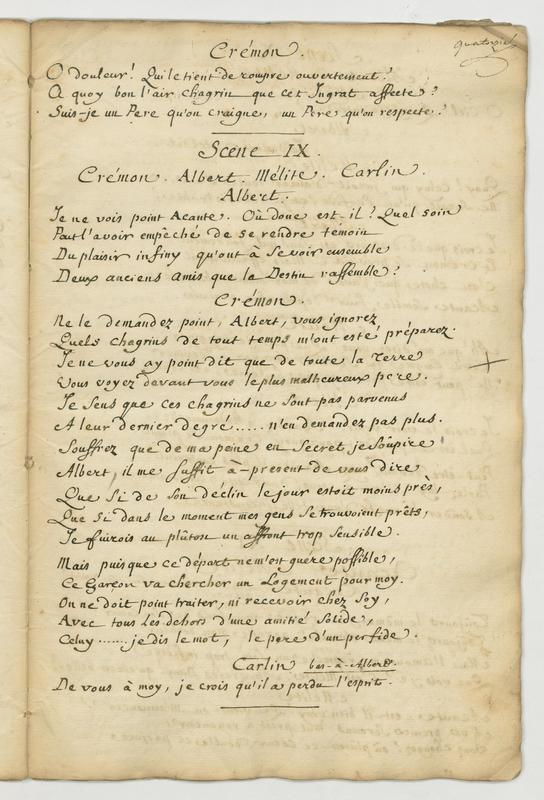 Crémon.
O douleur! Qui le tient de rompre ouvertement?
A quoy bon l'air chagrin que cet Ingrat affecte?
Suis-je un Pere qu'on craigne, un Pere qu'on respecte?
Scene IX.
Crémon. Albert. Mélite. Carlin.
Albert.
Je ne vois point Acante. Où donc est-il? Quel soin
Peut l'avoir empêché de se rendre temoin
Du plaisir infiny qu'ont à se voir ensemble
Deux anciens amis que le Destin rassemble?
Crémon.
Ne le demandez point, Albert, vous ignorez
Quels chagrins de tout temps m'ont esté préparez.
Je ne vous ay point dit que de toute la Terre
Vous voyez devant vous le plus malheureux pere.
Je sens que ces chagrins ne sont pas parvenus
A leur dernier degré...... n'en demandez pas plus.
Souffrez que de ma peine en secret je soûpire
Albert, il me suffit à-present de vous dire
Que si de son déclin le jour estoit moins près,
Que si dans le moment mes gens se trouvoient prêts,
Je fuirois au plûtost un affront trop sensible.
Mais puisque ce départ ne m'est guére possible,
Ce Garçon va chercher un Logement pour moy.
On ne doit point traiter, ni recevoir chez soy,
Avec tous les dehors d'une amitié solide,
Celuy....... je dis le mot, le pere d'un perfide.
Carlin bas-à-Albert.
De vous à moy, je crois qu'il a perdu l'esprit.